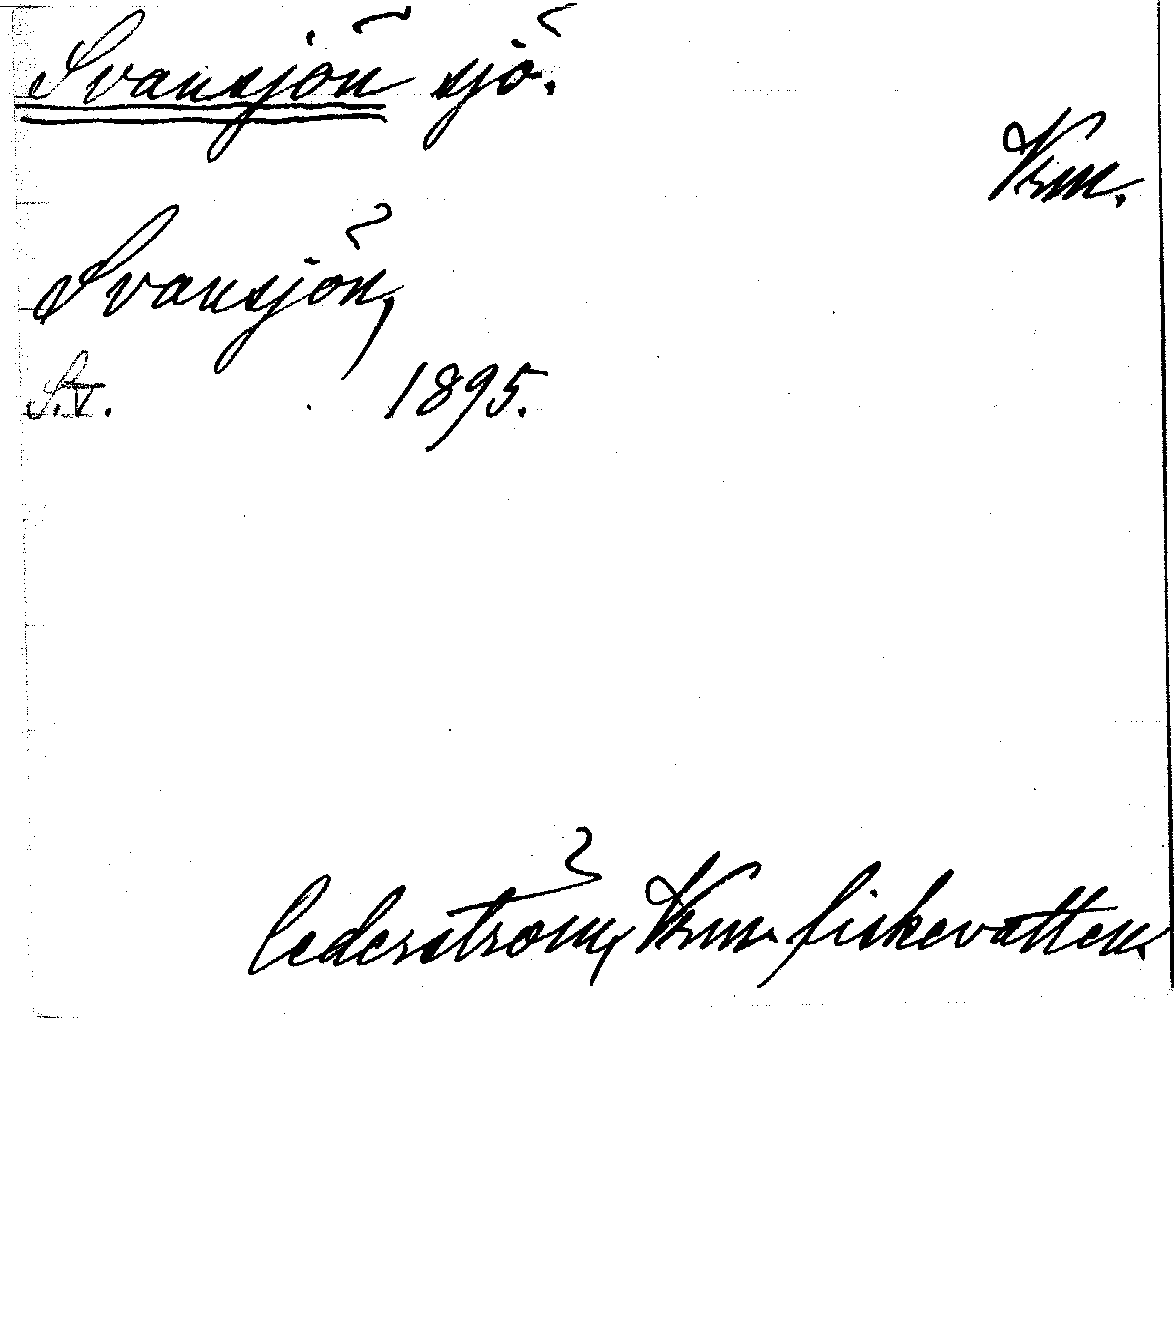 Svansjön sjö.
Vrm.
Svansjön,
1895.
Cederström, Vrm. fiskevatten.